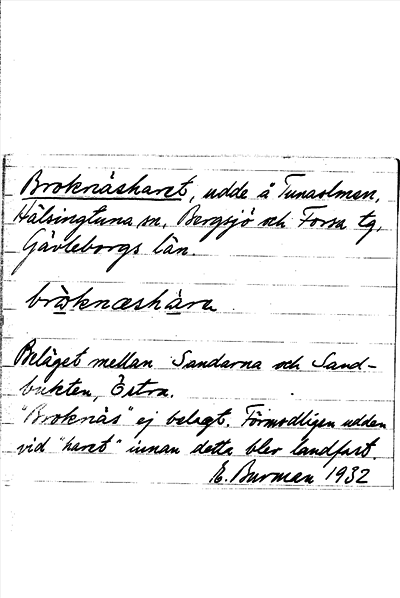 Broknäsharet, udde å Tunaolmen,
Hälsingtuna sn, Bergsjö och Forsa tg,
Gävleborgs län.
bròknæshàra
Beläget mellan Sandarna och Sand-
bukten, Östra.
"Broknäs" ej belagt. Förmodligen udden
vid "haret" innan detta blev landfast.
E. Burman 1932